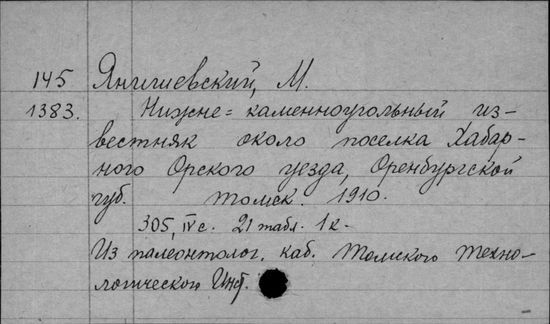 145 Янишевский, М.
1383. Нижне=каменноугольный из-
вестняк около поселка Хабар-
ного Орского уезда, Оренбургской
губ. Томск. 1910.
305, IV с. 21 табл. 1 к.
Из палеонтолог. каб. Томского Техно-
логического Инст.